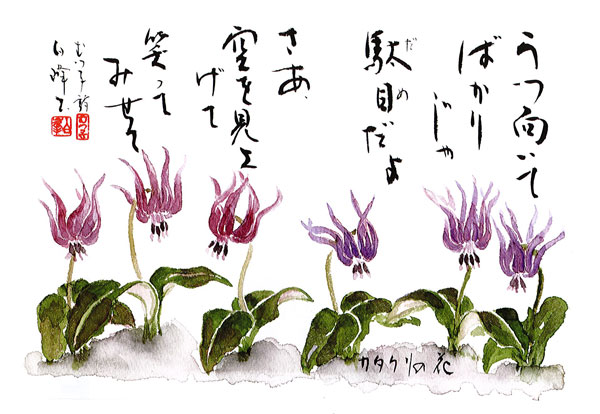 うつ向いて
ばかり
じゃ
だ め
駄目だよ
さあ、
空を見上
げて
笑って
みせて
カタクリの花